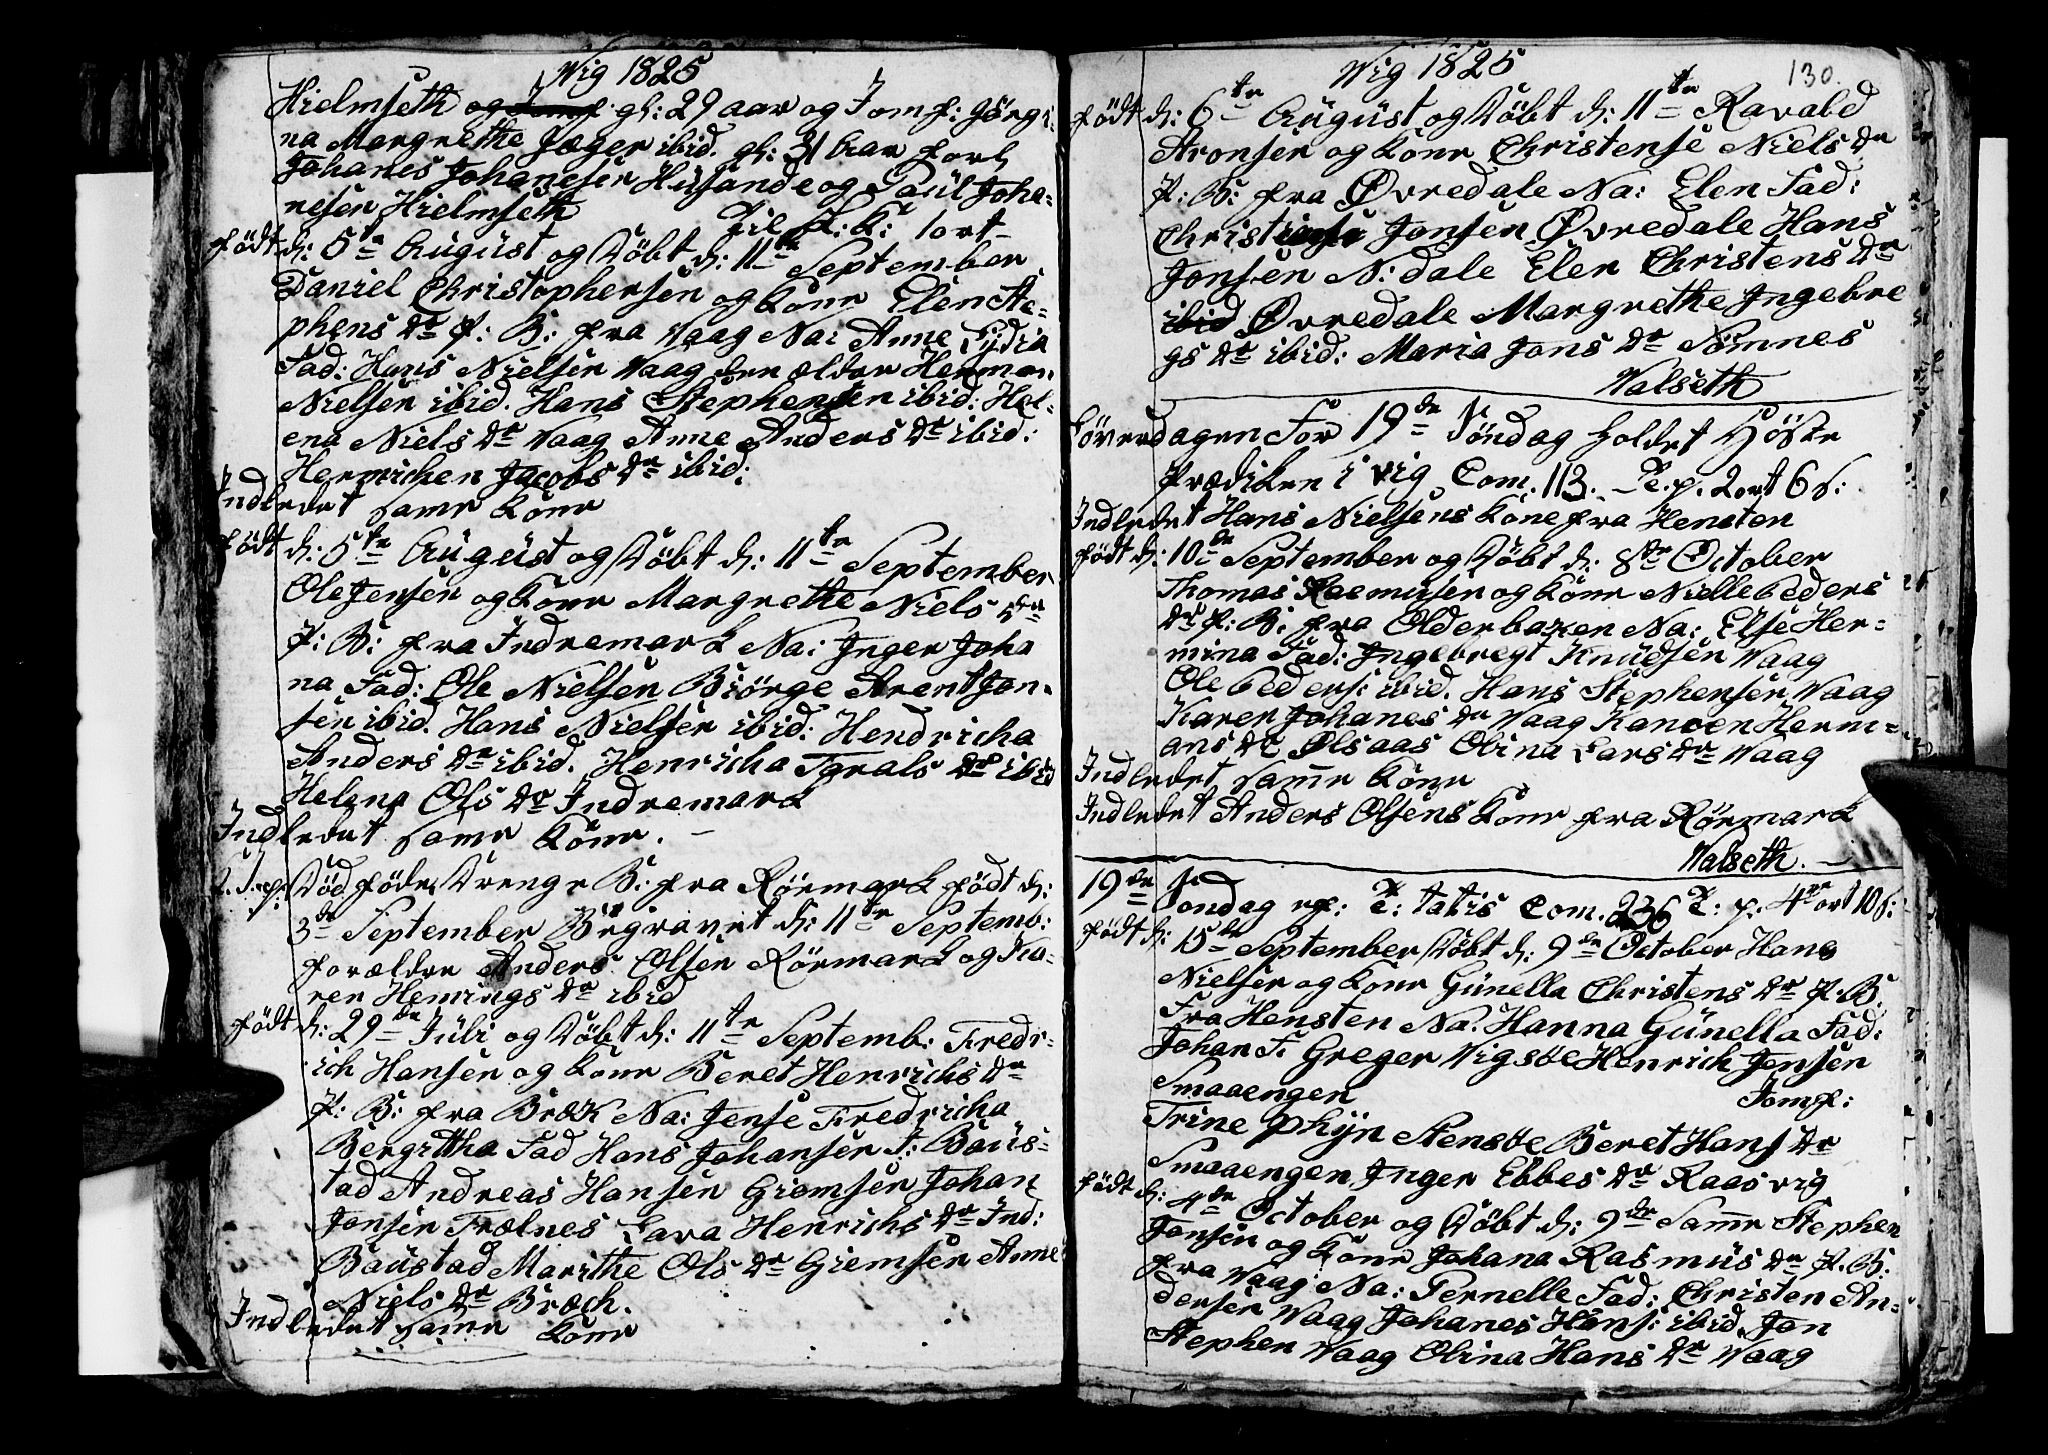 Wig 1825
Hielmseth og Jomf: gl: 29 aar og Jomf: Jörgi-
na Margrethe Jæger ibid. gl: 31 Aar forl
Johanes Johanesen Husande og Paul Joha-
nesen Hielmseth
Til H: K: 1 ort
födt d: 5te August og Döbt d: 11te September
Daniel Christophersen og Kone Elen Ste-
phens Dr P: B: fra Vaag Na: Anne Lydia
Fad: Hans Nielsen Vaag den ældre Herman
Nielsen ibid. Hans Stephensen ibid: Hel-
ena Niels Dr Vaag Anne Anders Dr ibid:
Henrichen Jacobs Dr ibid:
Indledet same Kone
födt d: 5te August og Döbt d: 11te September
Ole Jensen og Kone Margrethe Niels Dr
P: B: fra Indremark Na: Inger Joha
na Fad: Ole Nielsen Biörge Arent Jon-
sen ibid. Hans Nielsen ibid: Hendricha
Anders Dr ibid. Henricha Tgrals Dr ibid
Helena Ols Dr Indremark
Indledet same Kone. –
Död födes Drenge B: fra Rörmark födt d:
3de September Begravet d: 11te Septemb:
forældre Anders Olsen Rörmark og Ka-
ren Hemings Dr ibid
födt d: 29de Juli og Döbt d: 11te Septemb: Fredr-
ich Hansen og Kone Beret Henrichs Dr
P: B: fra Bræk Na: Jense Fredricha
Bergittha Fad Hans Johansen I: Baus-
tad Andreas Hansen Giemsen Johan
Jonsen Frælnes Lava Henrichs Dr Ind:
Baustad Marithe Ols Dr Giemsen Anne
Niels Dr Bræch.
Indledet same Kone
Wig 1825
130.
födt d: 6te August og Döbt d: 11te Ravald
Aronsen og Kone Christense Niels Dr
P: B: fra Øvredale Na: Elen Fad:
Christense Jonsen Øvredale Hans
Jonsen N: dale Elen Christens Dr
ibid Øvredale Margrethe Ingebre
gs Dr ibid: Maria Jons Dr Sømnes
Valseth
Löverdagen For 19de Söndag holdet Höste
Prædiken i vig Com. 113. – T. p. 2 ort 6 s:
Indledet Hans Nielsens Kone fra Hensten
födt d: 10de September og Döbt d: 8de October
Thomas Rasmusen og Kone Nielle Peders
Dr P: B: fra Olderbaken Na: Else Her-
mina Fad: Ingebregt Knudsen Vaag
Ole Peders: ibid. Hans Stephensen Vaag
Karen Johanes Dr Vaag Hanven Herm-
ans Dr Olsaas Olina Lars Dr Vaag
Indledet same Kone
Indledet Anders Olsens Kone fra Rörmark
Valseth. –
19de Söndag ep: T: tatis Com. 236 T: p. 4re ort 10 s:
födt d: 15de September Döbt d: 9de October Hans
Nielsen og Kone Günella Christens Dr P. B.
Fra Hensten Na. Hanna Günella Fad:
Johan F. Greger Vigsöe Henrich Jensen
Smaaengen Jomf:
Trine Phijn Stensöe Beret Hans Dr
Smaaengen Inger Ebbes Dr Raasvig
födt d: 4de October og Döbt d: 9de Same Stephen
Jonsen og Kone Johana Rasmus Dr P. B:
fra Vaag Na: Pernelle Fad: Christen An-
dersen Vaag Johanes Hans: ibid. Jon
Stephen Vaag Olina Hans Dr Vaag